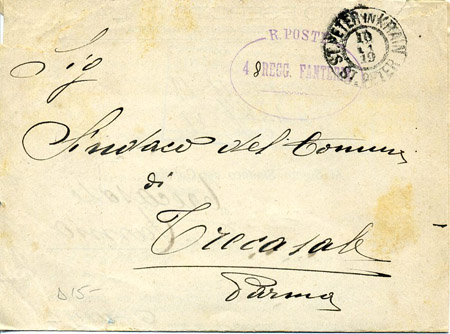 R. POSTE
48 REGG. FANTER
ST. PETER IN KRAIN
10
11
19
ST. PETER
Sig
Sindaco del Comune
di
Trecasale
Parma